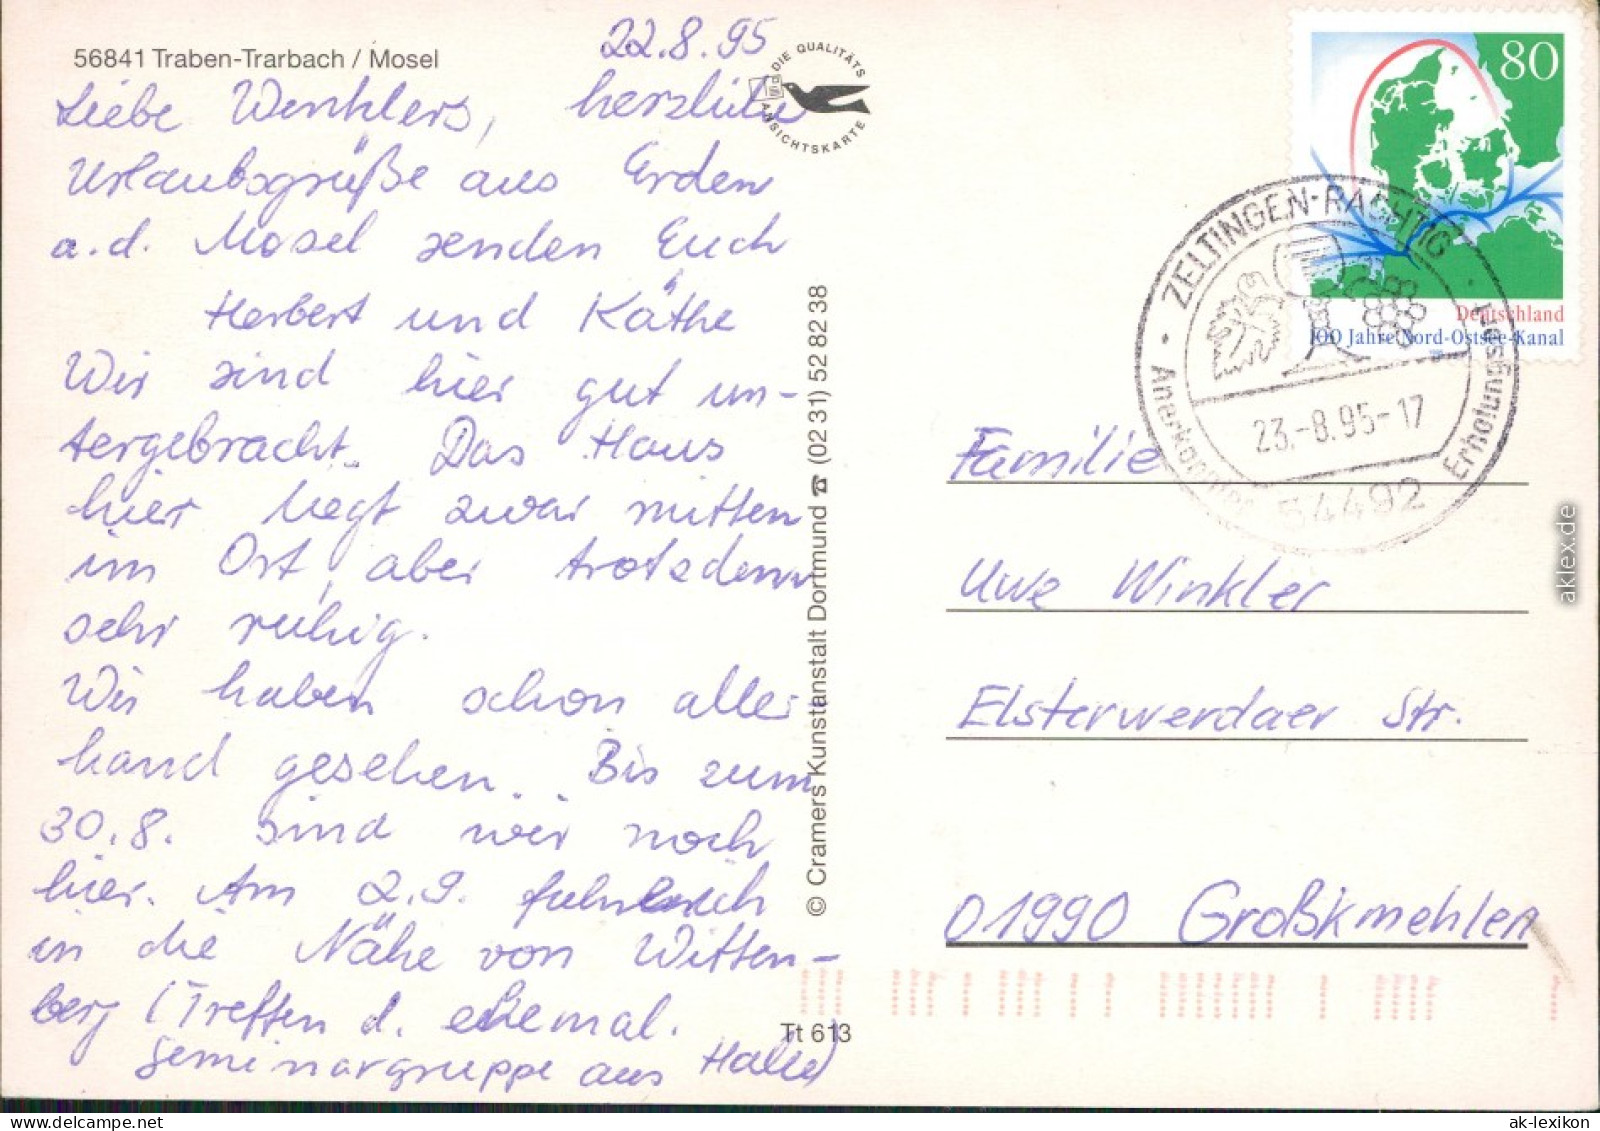 56841 Traben-Trarbach / Mosel
22.8.95
DIE QUALITÄTS
ANSICHTSKARTE
Liebe Winklers, herzliche
Urlaubsgrüße aus Erden
a.d. Mosel senden Euch
Herbert und Käthe
Wir sind hier gut un-
tergebracht. Das Haus
hier liegt zwar mitten
im Ort, aber trotzdem
sehr ruhig.
Wir haben schon aller
hand gesehen. Bis zum
30.8. sind wir noch
hier. Am 2.9. fahren
in die Nähe von Witten-
berg (Treffen d. ehemal.
Seminargruppe aus Halle)
© Cramers Kunstanstalt Dortmund ☎ (02 31) 52 82 38
Tt 613
80
Deutschland
100 Jahre Nord-Ostsee-Kanal
ZELTINGEN-RACHTIG
23.-8.95-17
54492
Anerkannter Erholungsort
Familie
Uwe Winkler
Elsterwerdaer Str.
01990 Großkmehlen
aklex.de
www.delcampe.net
ak-lexikon